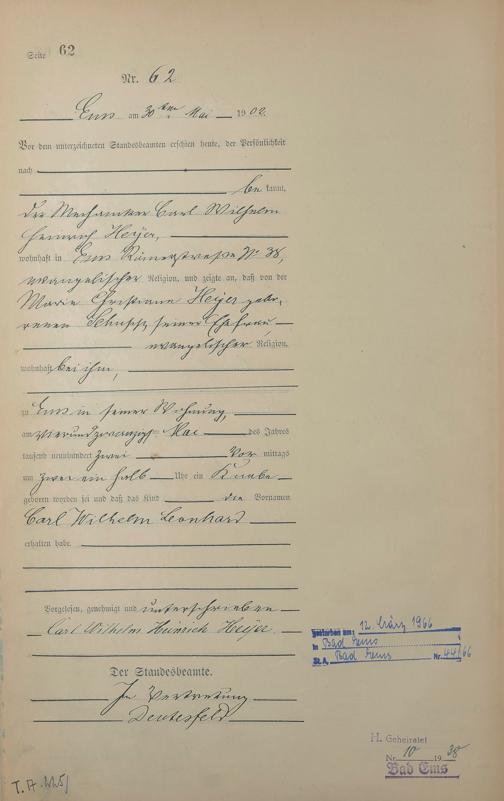 Seite 62
Nr. 62
Ems am 30ten Mai 1902.
Vor dem unterzeichneten Standesbeamten erschien heute, der Persönlichkeit
nach
be kannt,
der Mechaniker Carl Wilhelm
Heinrich Heyer,
wohnhaft in Ems Römerstraße No 38,
evangelischer Religion, und zeigte an, daß von der
Marie Christiane Heyer gebo-
renen seiner Ehefrau
evangelischer Religion,
wohnhaft bei ihm,
zu Ems in seiner Wohnung,
am vierundzwanzigsten Mai des Jahres
tausend neunhundert zwei Vor mittags
um zwei ein halb Uhr ein Knabe
geboren worden sei und daß das Kind die Vornamen
Carl Wilhelm Leonhard
erhalten habe.
Vorgelesen, genehmigt und unterschrieben
Carl Wilhelm Heinrich Heyer
Der Standesbeamte.
In Vertretung
Gestorben am: 12. März 1966
in Bad Ems
St. A. Bad Ems Nr. 44/66
H. Geheiratet
Nr. 10 1938
Bad Ems